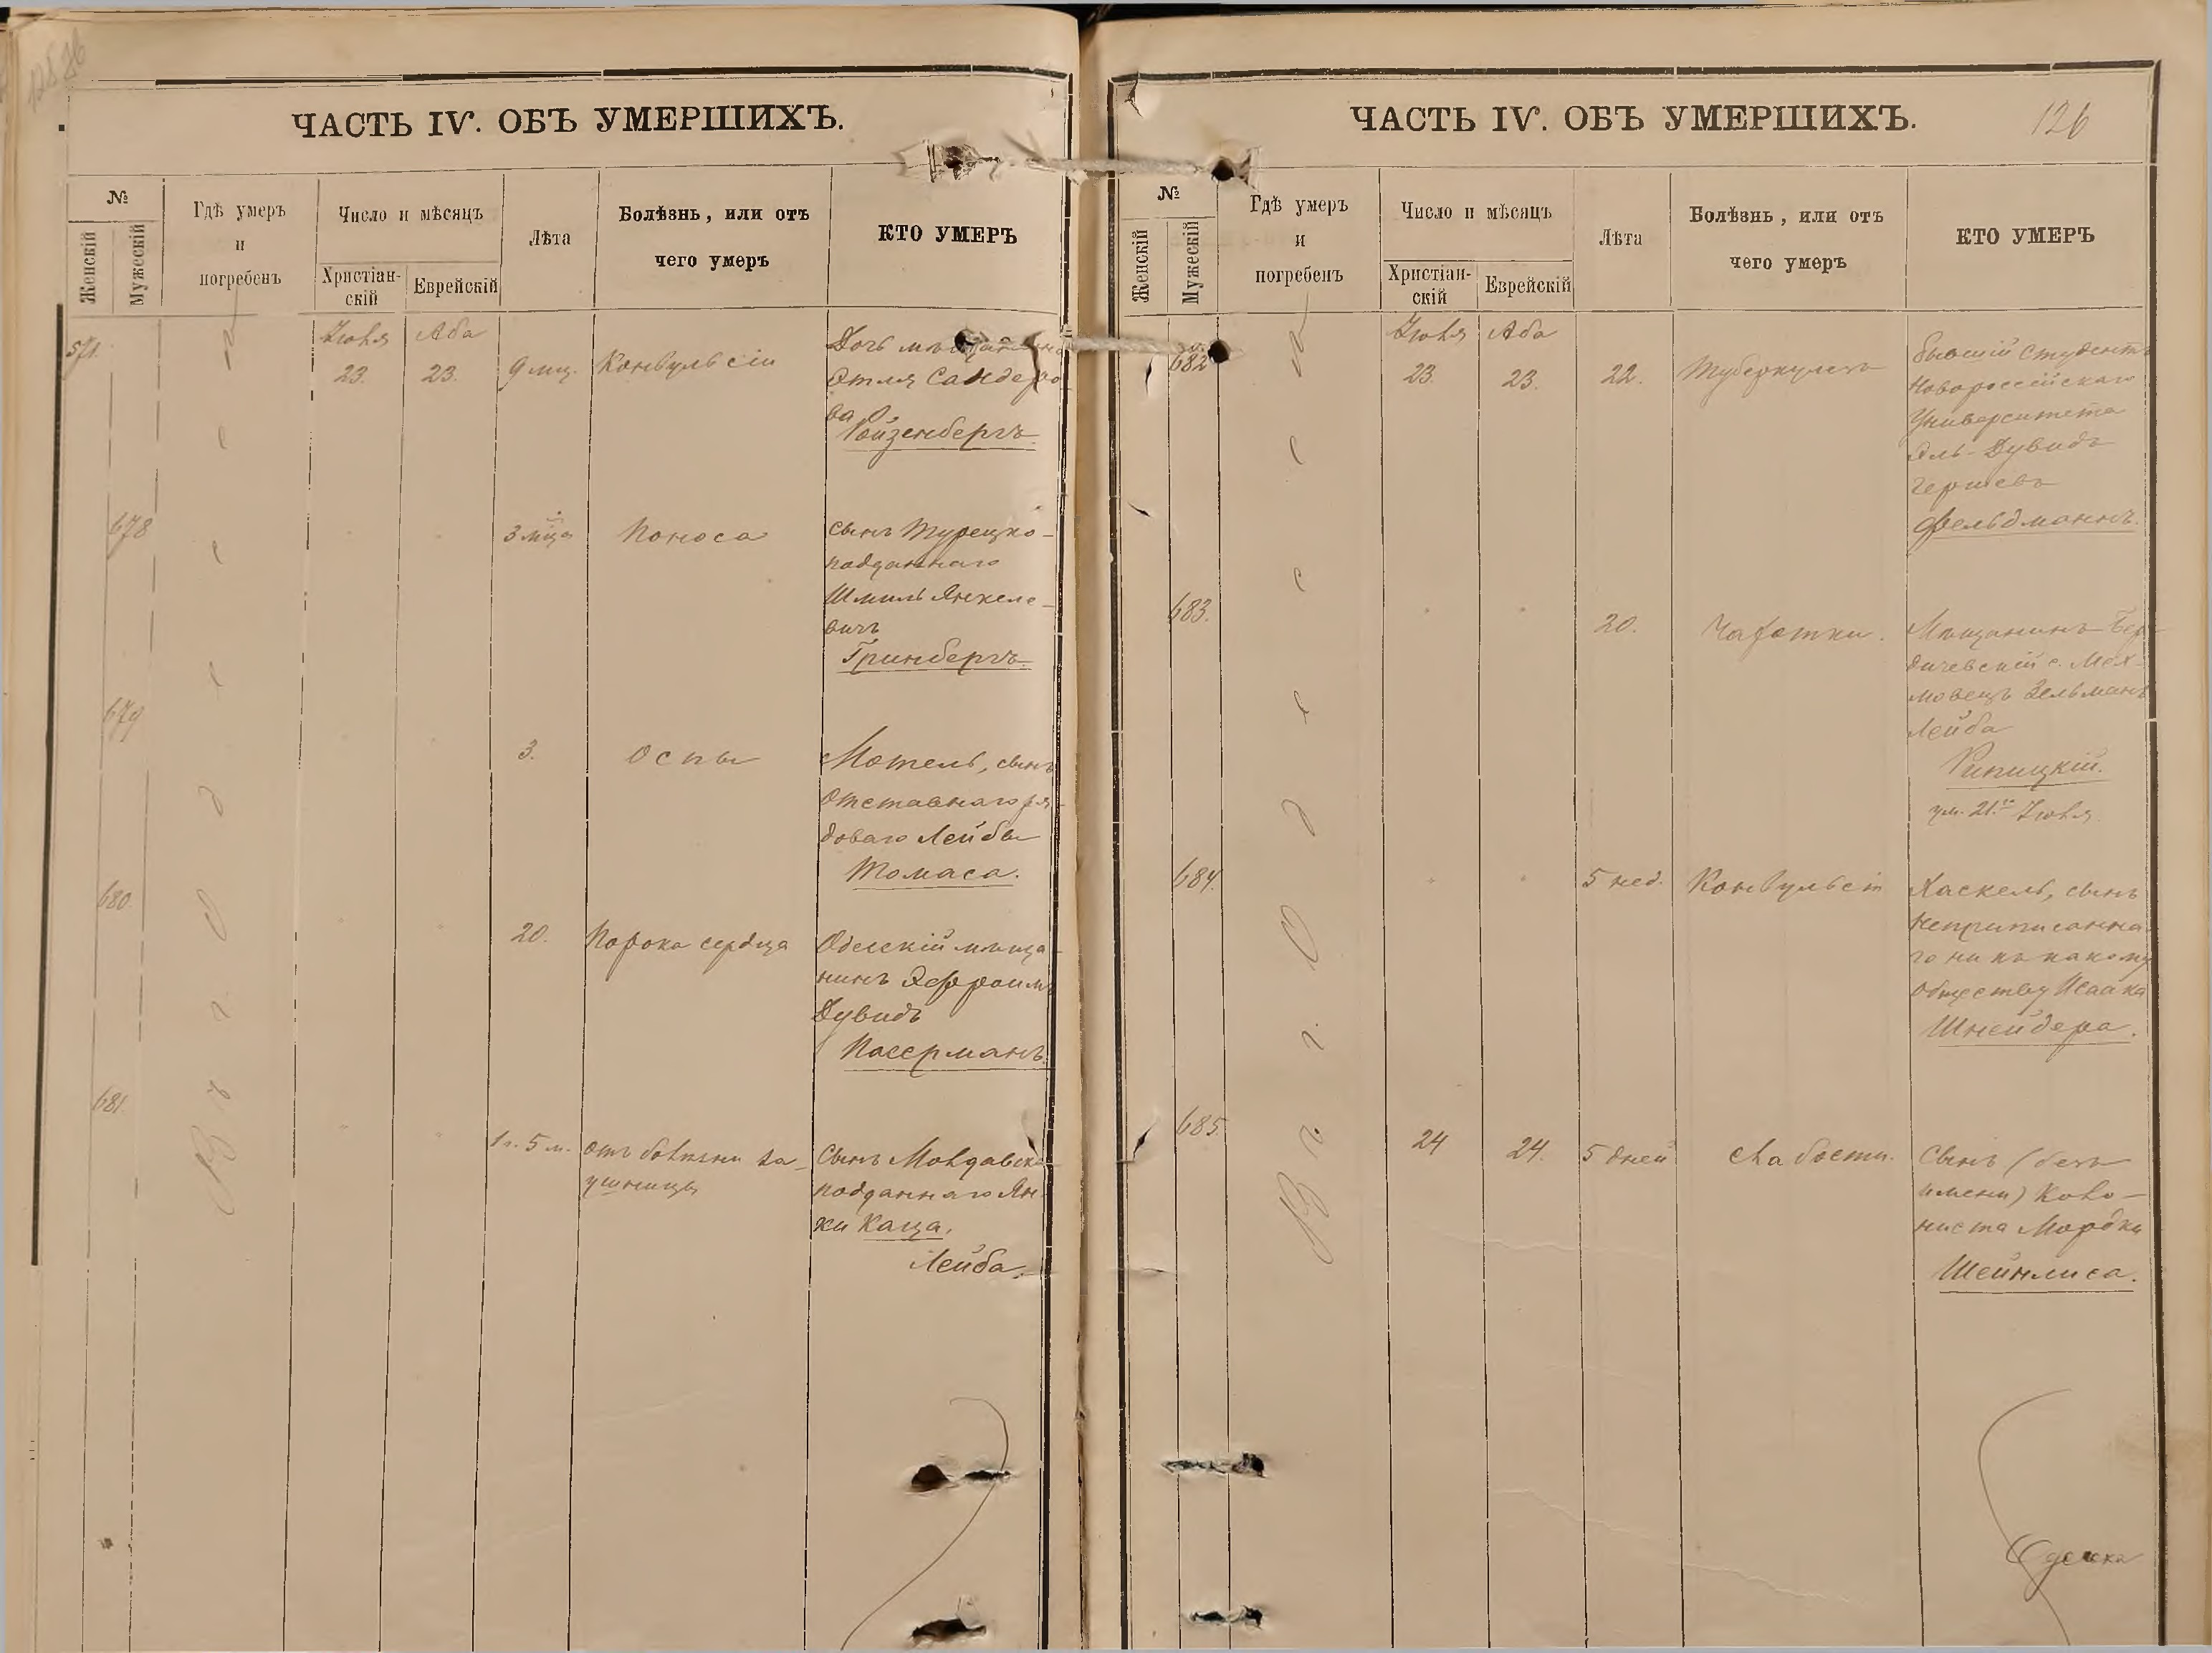 ЧАСТЬ IV. ОБЪ УМЕРШИХЪ.
№
Женскій
Мужескій
Гдѣ умеръ
и
погребенъ
Число и мѣсяцъ
Христіан-
скій
Еврейскій
Лѣта
Болѣзнь, или отъ
чего умеръ
КТО УМЕРЪ
В г. Одессѣ
571.
Іюля
23.
Аба
23.
9 мц.
Конвульсіи
Дочь мѣщанина
Этля Сандеро-
ва
Ройзенбергъ.
678
3 мца
Поноса
сынъ Турецко-
подданнаго
Шмиль Янкеле-
вичъ
Гринбергъ.
679
3.
Оспы
Мотель, сынъ
отставнаго ря-
доваго Лейбы
Томаса.
680
20.
Порока сердца
Одесскій мѣща-
нинъ Эфроимъ
Дувидъ
Пасерманъ.
681.
1 г. 5 м.
отъ болѣзни за-
ушницы
Сынъ Молдавск
подданнаго Ян-
ки Каца.
Лейба.
ЧАСТЬ IV. ОБЪ УМЕРШИХЪ.
126
№
Женскій
Мужескій
Гдѣ умеръ
и
погребенъ
Число и мѣсяцъ
Христіан-
скій
Еврейскій
Лѣта
Болѣзнь, или отъ
чего умеръ
КТО УМЕРЪ
В г. Одессѣ
682
Іюля
23.
Аба
23.
22.
Туберкулезъ
бывшій студентъ
Новороссійскаго
Университета
Эль-Дувидъ
Гершевъ
Фельдманнъ.
683.
20.
Чахотки.
Мѣщанинъ Бер-
дичевскій с. Мах-
новецъ Зельманъ
Лейба
Рипицкій.
ум. 21го Іюля
684.
5 нед.
Конвульсіи
Хаскель, сынъ
неприписанна-
го ни къ какому
обществу Исаака
Шнейдера.
685.
24
24.
5 дней
слабости.
Сынъ (безъ
имени) Коло-
ниста Мордки
Шейнлиса.